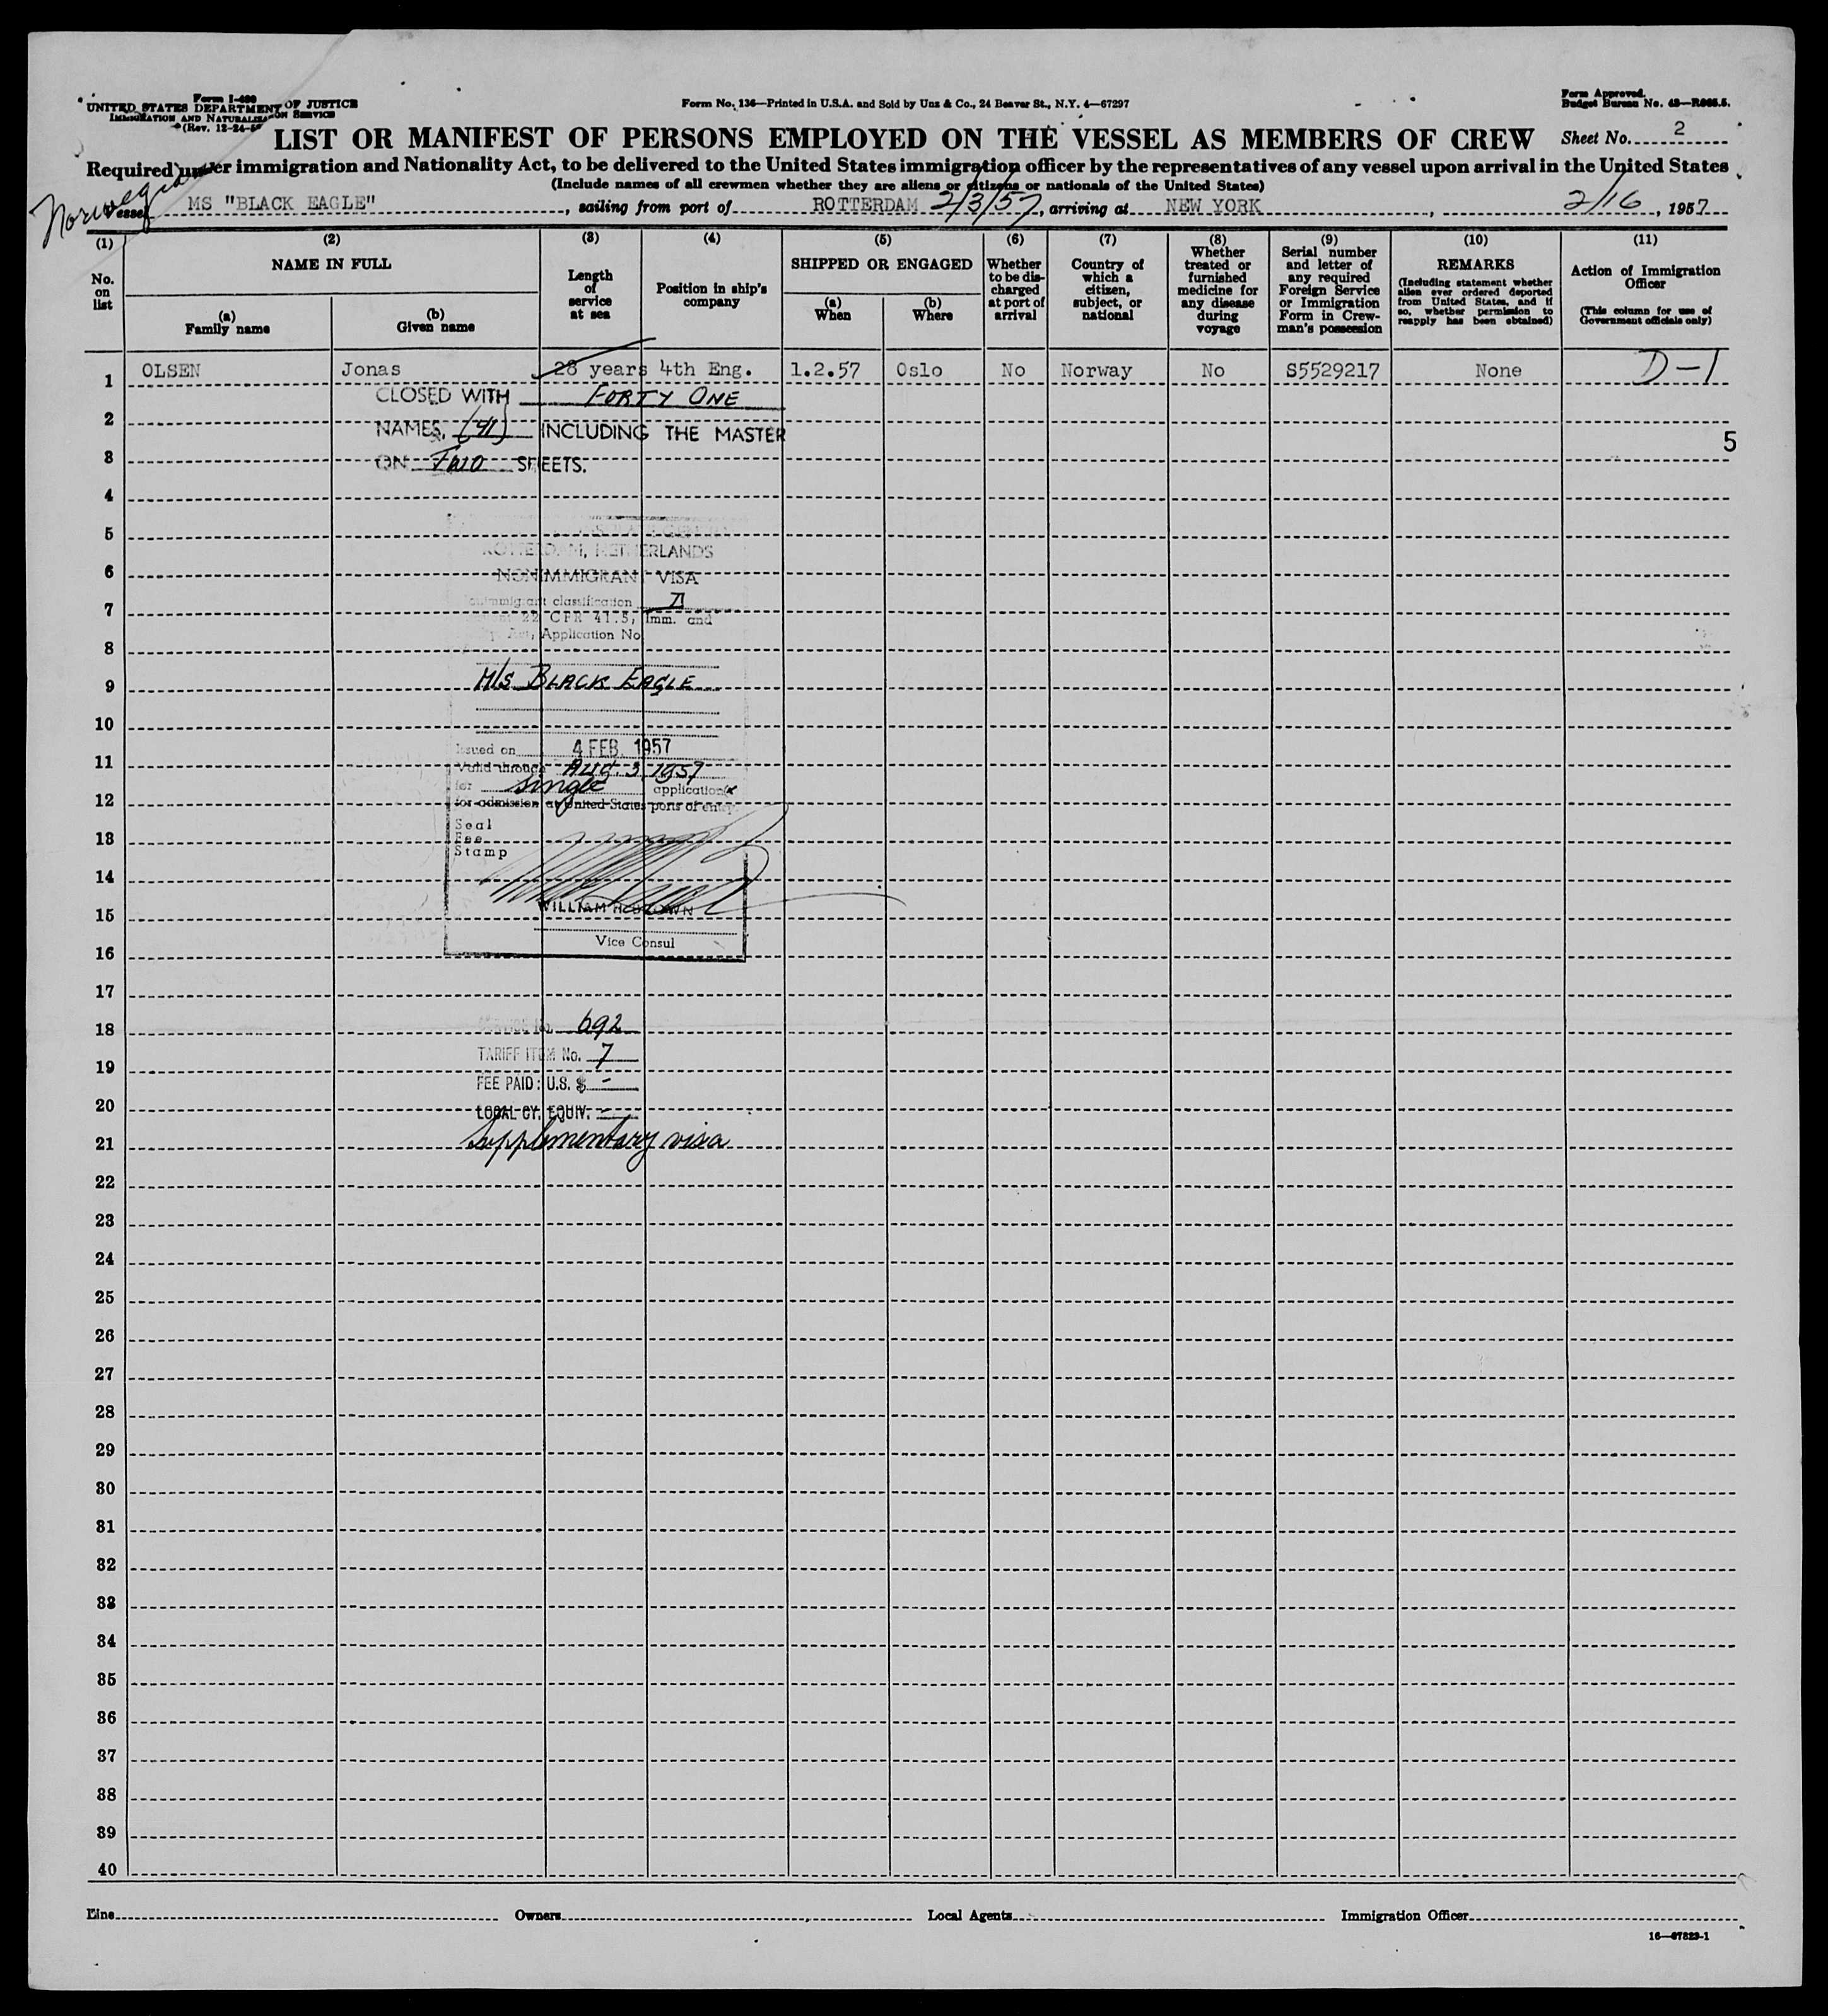 Form I-480
UNITED STATES DEPARTMENT OF JUSTICE
IMMIGRATION AND NATURALIZATION SERVICE
(Rev. 12-24-5
Form No. 136—Printed in U.S.A. and Sold by Unz & Co., 24 Beaver St., N.Y. 4—67297
Form Approved.
Budget Bureau No. 43—R065.5.
LIST OR MANIFEST OF PERSONS EMPLOYED ON THE VESSEL AS MEMBERS OF CREW
Sheet No. 2
Required under immigration and Nationality Act, to be delivered to the United States immigration officer by the representatives of any vessel upon arrival in the United States
(Include names of all crewmen whether they are aliens or citizens or nationals of the United States)
Norwegian
Vessel MS "BLACK EAGLE", sailing from port of ROTTERDAM 2/3/57, arriving at NEW YORK, 2/16, 1957
(1) (2) (3) (4) (5) (6) (7) (8) (9) (10) (11)
No. on list
NAME IN FULL
(a) Family name
(b) Given name
Length of service at sea
Position in ship's company
SHIPPED OR ENGAGED
(a) When
(b) Where
Whether to be discharged at port of arrival
Country of which a citizen, subject, or national
Whether treated or furnished medicine for any disease during voyage
Serial number and letter of any required Foreign Service or Immigration Form in Crewman's possession
REMARKS
(Including statement whether alien ever ordered deported from United States, and if so, whether permission to reapply has been obtained)
Action of Immigration Officer
(This column for use of Government officials only)
1 OLSEN Jonas 28 years 4th Eng. 1.2.57 Oslo No Norway No S5529217 None D-1
CLOSED WITH FORTY ONE
2
NAMES, (41) INCLUDING THE MASTER
5
3
ON TWO SHEETS.
4
5
ROTTERDAM, NETHERLANDS
6
NONIMMIGRANT VISA
7
immigrant classification D
22 CFR 41.5, Imm. and
Act, Application No
8
9
M/S BLACK EAGLE
10
11
Issued on 4 FEB. 1957
Valid through AUG. 3, 1957
for single applications
12
for admission at United States ports of entry
Seal
13
Fee
Stamp
14
15
WILLIAM H. BROWN
Vice Consul
16
17
18
No. 692
19
TARIFF ITEM No. 7
FEE PAID: U.S. $ -
20
LOCAL CY. EQUIV. -
21
Supplementary visa
22
23
24
25
26
27
28
29
30
31
32
33
34
35
36
37
38
39
40
Line
Owners
Local Agents
Immigration Officer
16—67823-1